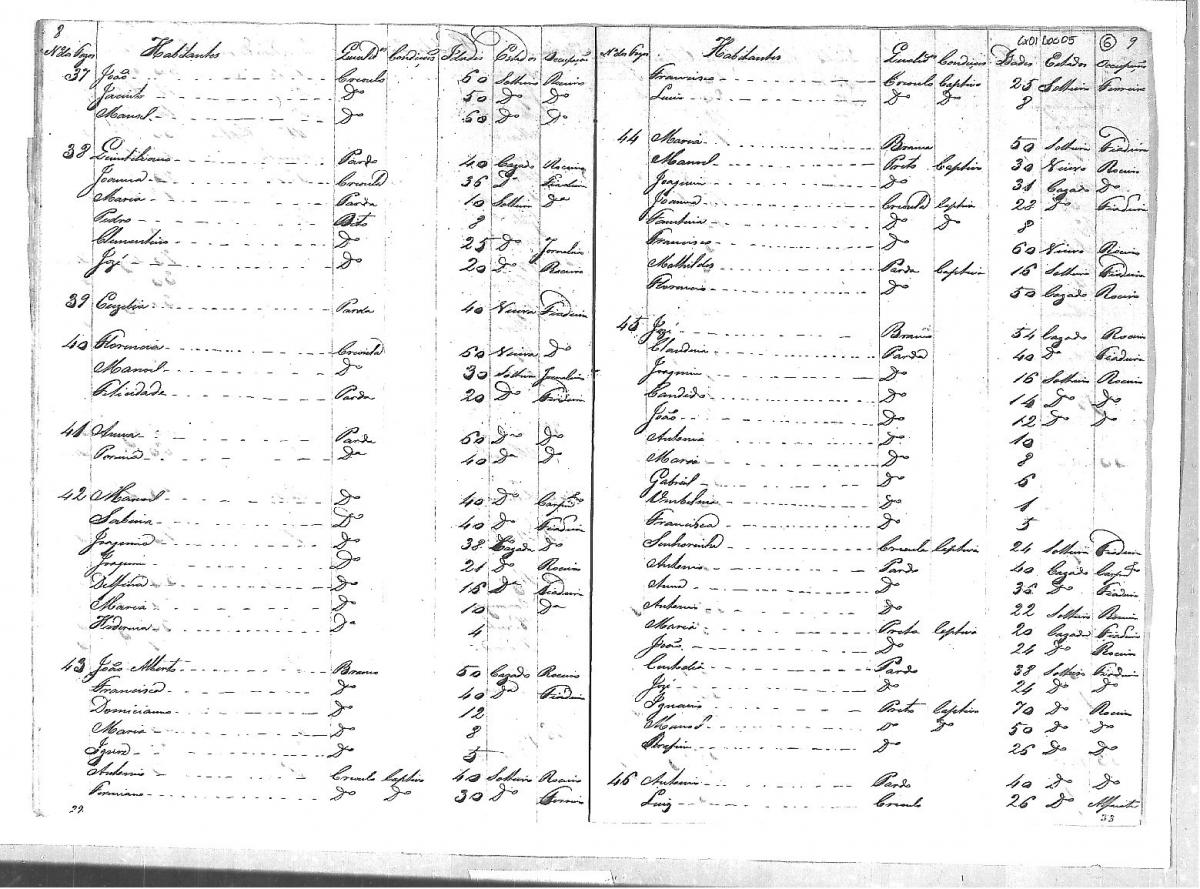 8
Nos dos Fogos Habitantes Qualides Condições Idades Estados Occupação
37 João Crioulo 60 Solteiro Roceiro
Jacinto Do 50 Do Do
Manoel Do 60 Do Do
38 Quintiliano Pardo 40 Cazado Roceiro
Joanna Crioula 36 Do Fiadeira
Maria Parda 10 Solteira Da
Pedro 8
Clementino Do 25 Do Jornaleiro
Jozé Do 20 Do Roceiro
39 Parda 40 Viuva Fiadeira
40 Florencia Crioula 60 Viuva Do
Manoel Do 30 Solteiro Jornaleiro
Felicidade Parda 20 Do Fiadeira
41 Anna Parda 60 Do Do
Da 40 Da Da
42 Manoel Do 40 Do Carpro
Sabina Do 40 Do Fiadeira
Do 38 Cazada Do
Joaquim Do 21 Do Roceiro
Delfina Do 16 Da Fiadeira
Maria Do 10 Da
Da 4
43 João Alberto Branco 50 Cazado Roceiro
Francisca Do 40 Da Fiadeira
Domiciano Do 12
Maria Do 8
Do 5
Antonio Crioulo Captivo 40 Solteiro Roceiro
Do Do 30 Do Ferreiro
29
Cx01 D0005 6 9
Nos dos Fogos Habitantes Qualides Condições Idades Estados Occupação
Francisco Crioulo Captivo 25 Solteiro Ferreiro
Luis Do Do 8
44 Maria Branca 50 Solteira Fiadeira
Manoel Preto Captivo 30 Viuvo Roceiro
Joaquim Do 31 Cazado Do
Joanna Crioula Captiva 22 Do Fiadeira
Faustina Do Do 8
Francisco Do 60 Viuvo Roceiro
Mathildes Parda Captiva 16 Solteira Fiadeira
Florencio Do 50 Cazado Roceiro
45 Jozé Branco 54 Cazado Roceiro
Claudina Parda 40 Do Fiadeira
Joaquim Do 16 Solteiro Roceiro
Candido Do 14 Do Do
João Do 12 Do Do
Antonio Do 10
Maria Do 8
Gabriel Do 6
Umbelina Do 1
Francisca Do 5
Senhorinha Crioula Captiva 24 Solteira Fiadeira
Antonio Pardo 40 Cazado Carpro
Anna Do 36 Do Fiadeira
Antonio Do 22 Solteiro Roceiro
Maria Preta Captiva 20 Cazada Fiadeira
João Do 24 Do Roceiro
Custodia Parda 38 Solteira Fiadeira
Jozé Do 24 Do Do
Ignacio Preto Captivo 70 Do Roceiro
Manoel Do Do 50 Do Do
Do 26 Do Do
46 Antonio Pardo 40 Do Do
Luiz Crioulo 26 Do
33